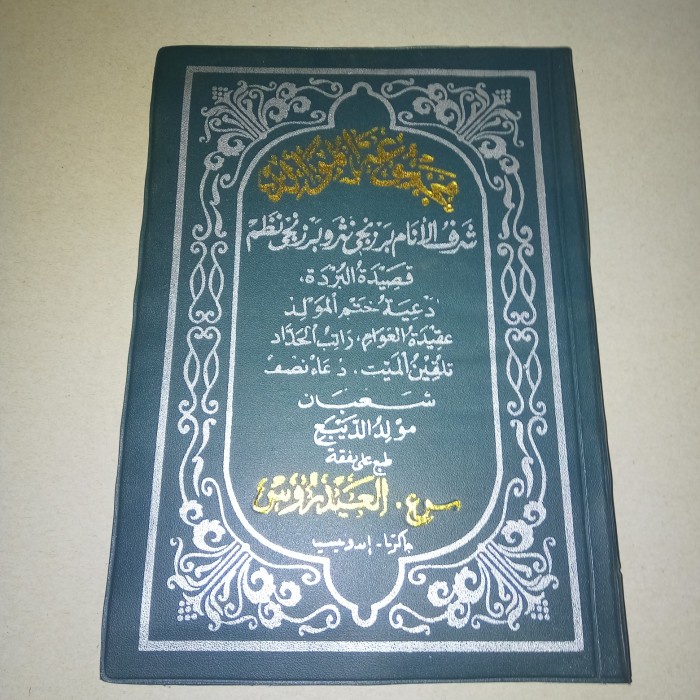 مجموعة الموالد
شرف الأنام برزنجي نثر وبرزنجي نظم
قصيدة البُرْدَة،
دعية ختم المولد
عقيدة العوام، راتب الحداد
تلقين الميت، دعاء نصف
شعبان
مولد الديبع
طبع على نفقة
س. ع. العيدروس
جاكرتا - إندونيسيا